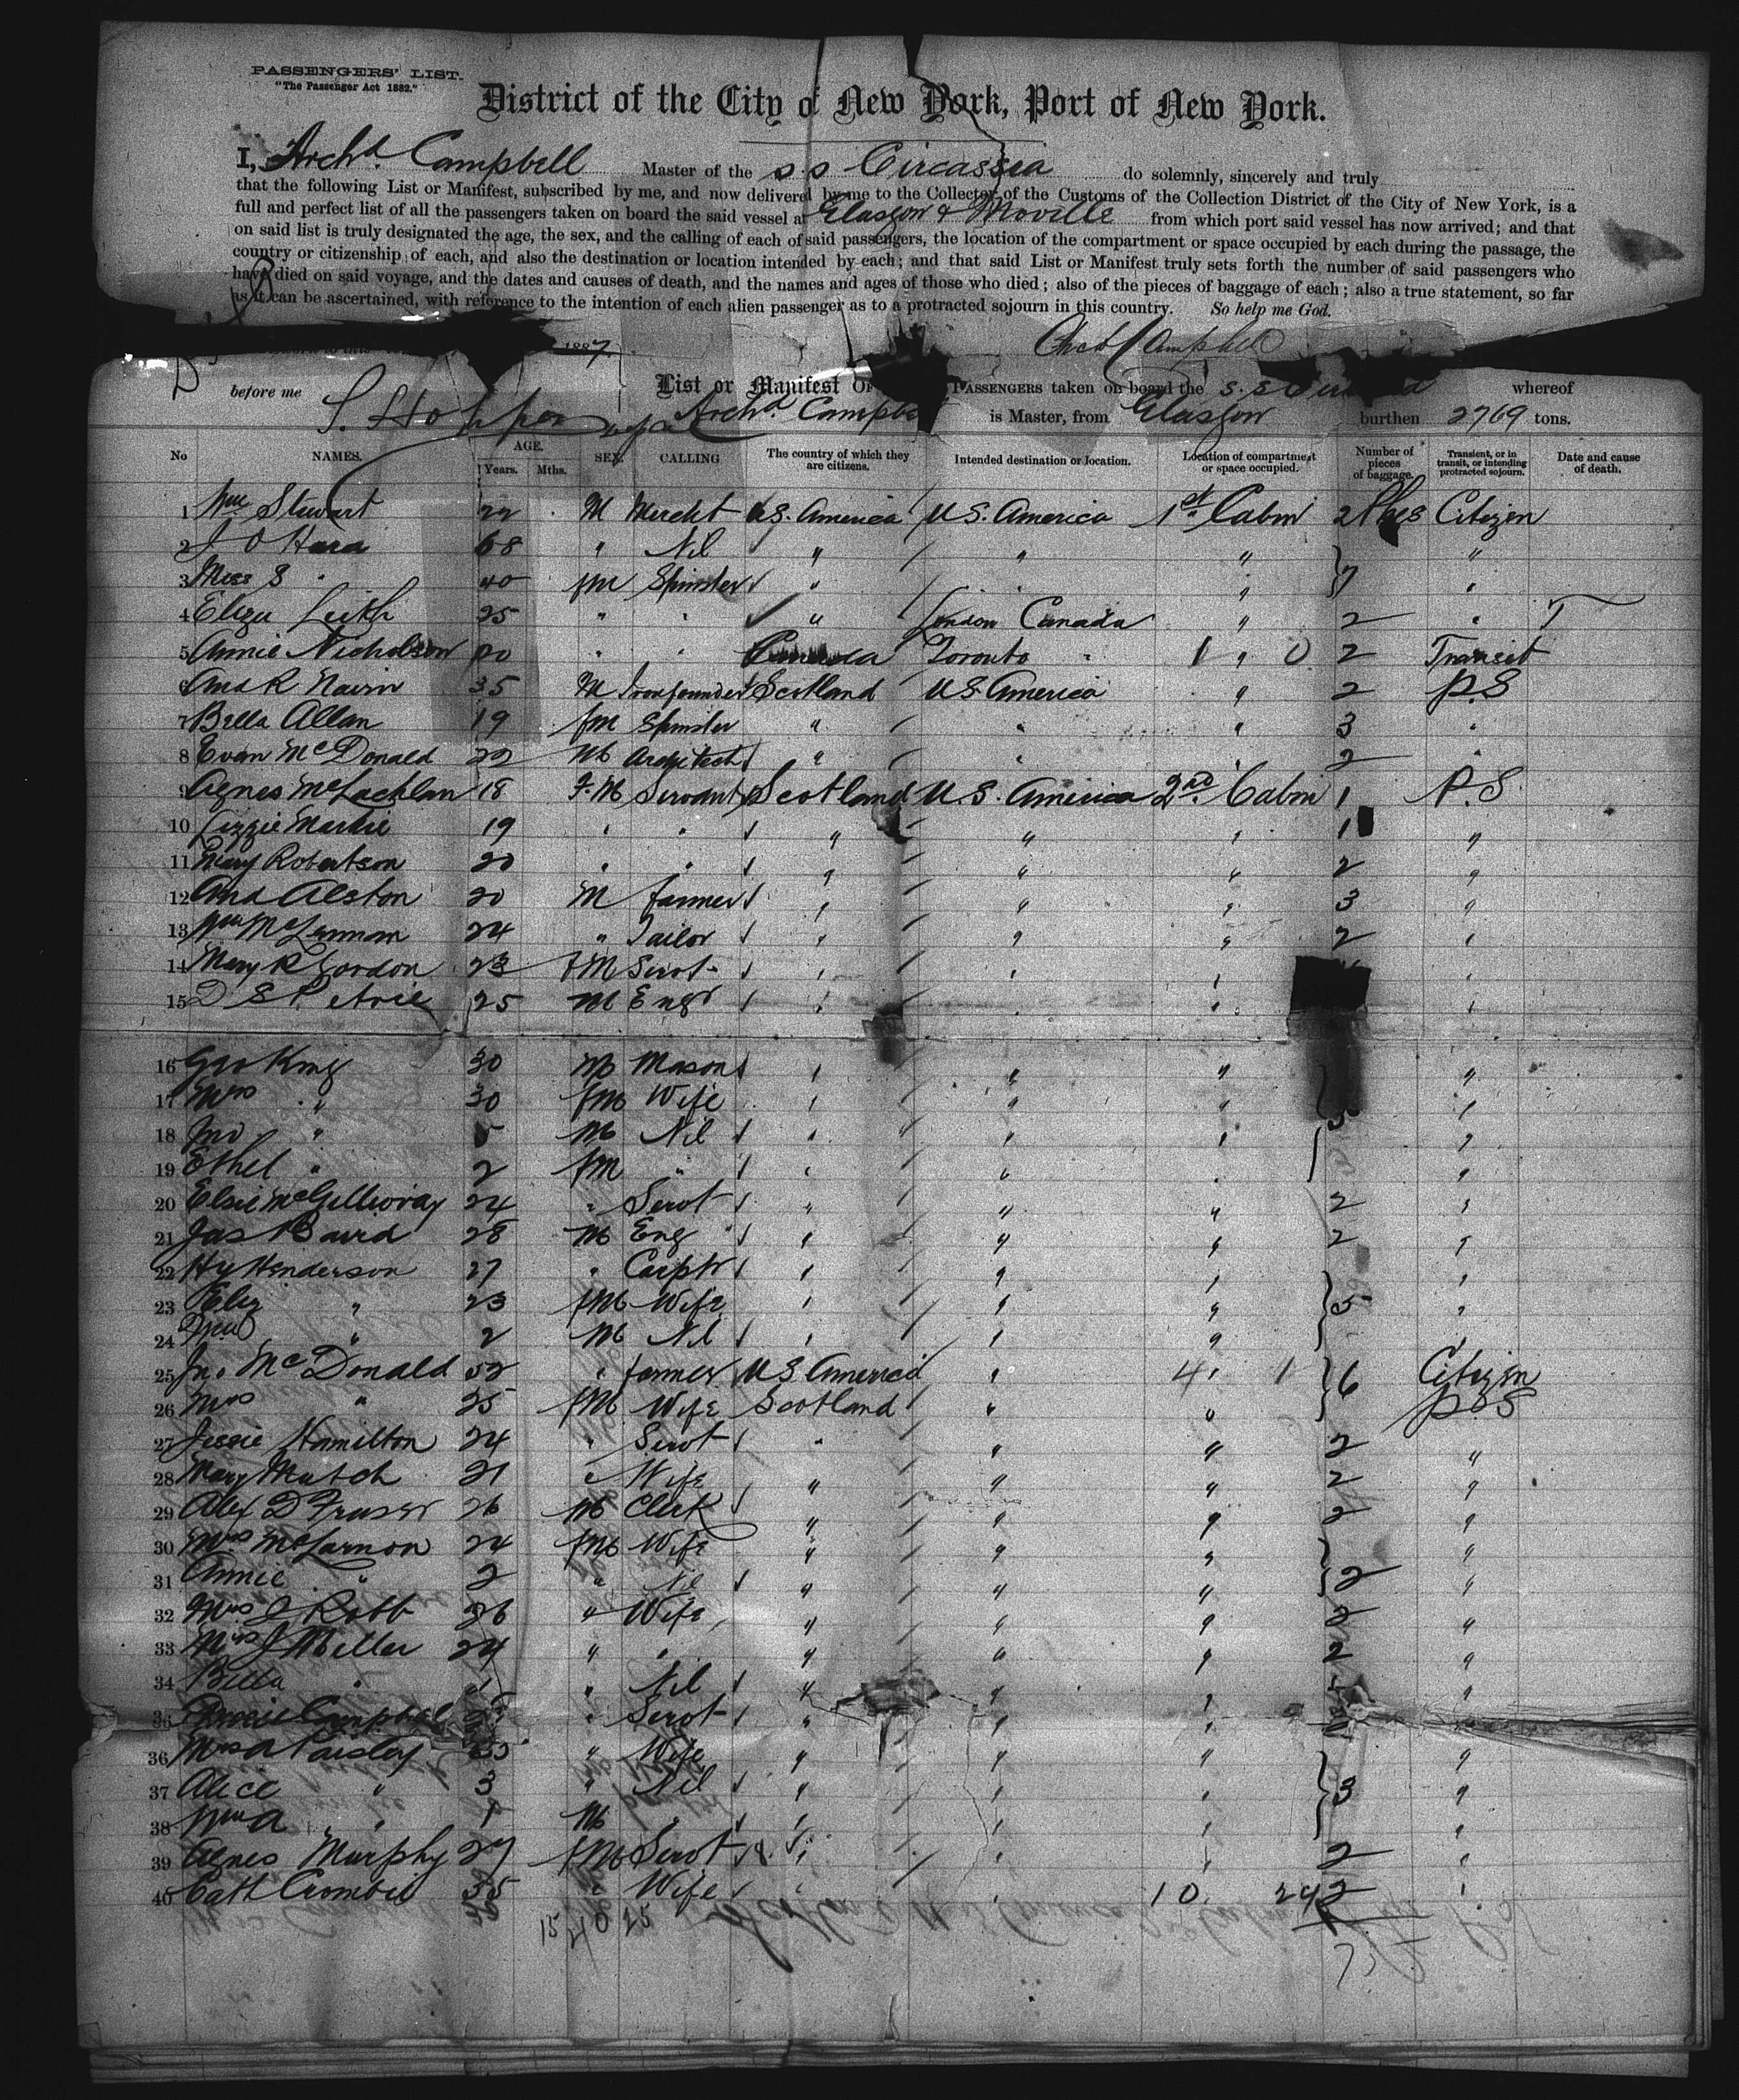 PASSENGERS' LIST.
"The Passenger Act 1882."
District of the City of New York, Port of New York.
I, Archd. Campbell Master of the s.s Circassia do solemnly, sincerely and truly
that the following List or Manifest, subscribed by me, and now delivered by me to the Collector of the Customs of the Collection District of the City of New York, is a
full and perfect list of all the passengers taken on board the said vessel at Glasgow & Moville from which port said vessel has now arrived; and that
on said list is truly designated the age, the sex, and the calling of each of said passengers, the location of the compartment or space occupied by each during the passage, the
country or citizenship of each, and also the destination or location intended by each; and that said List or Manifest truly sets forth the number of said passengers who
have died on said voyage, and the dates and causes of death, and the names and ages of those who died; also of the pieces of baggage of each; also a true statement, so far
as it can be ascertained, with reference to the intention of each alien passenger as to a protracted sojourn in this country. So help me God.
1887. Archd Campbell
before me List or Manifest OF PASSENGERS taken on board the s.s whereof
Archd. Campbell is Master, from Glasgow burthen 2769 tons.
No NAMES. AGE. Years. Mths. SEX. CALLING The country of which they are citizens. Intended destination or location. Location of compartment or space occupied. Number of pieces of baggage. Transient, or in transit, or intending protracted sojourn. Date and cause of death.
1 Wm Stewart 22 M Mercht U.S. America U.S. America 1st Cabin 2 Pkgs Citizen
2 J O Hara 68 " Nil " " " "
3 Miss S " 40 fm Spinster " " " 7 "
4 Eliza Leith 25 " " " London Canada " 2 "
5 Annie Nicholson 20 " " Canada Toronto " 1 " 0 2 Transit
6 And R Nairn 35 M Ironfounder Scotland U.S. America " 2 P.S
7 Bella Allan 19 fm Spinster " " " 3 "
8 Evan McDonald 22 M Architect " " " 2 "
9 Agnes McLachlan 18 F.M Servant Scotland U.S. America 2nd. Cabin 1 P.S.
10 Lizzie 19 " " " " " 1 "
11 Mary Robertson 20 " " " " " 2 "
12 And Alston 20 M farmer " " " 3 "
13 Wm McLennan 24 " Tailor " " " 2 "
14 Mary R Gordon 23 FM Servt " " " "
15 D S Petrie 25 M Engr " " " "
16 Geo King 30 M Mason " " " "
17 Mrs " 30 fm Wife " " " "
18 Jno " 5 M Nil " " " "
19 Ethel " 2 fm " " " " "
20 Elsie McGillivray 24 " Servt " " " 2 "
21 Jas Baird 28 M Eng " " " 2 "
22 Hy Henderson 27 " Carptr " " " "
23 Eliz " 23 fm Wife " " " 5 "
24 Wm " 2 M Nil " " " "
25 Jno McDonald 52 " farmer U.S America " 4 " 1 6 Citizen
26 Mrs " 25 fm Wife Scotland " " P.S
27 Jessie Hamilton 24 " Servt " " " 2 "
28 Mary Mutch 21 " Wife " " " 2 "
29 Alex D Fraser 26 M Clerk " " " 2 "
30 Mrs McLarnon 24 fm Wife " " " "
31 Annie " 2 " Nil " " " 2 "
32 Mrs J Robb 26 " Wife " " " 2 "
33 Mrs J Miller 24 " " " " " 2 "
34 Bella " " Nil " " " "
35 Campbell " Servt " " " "
36 Mrs A Paisley " Wife " " " "
37 Alice " 3 " Nil " " " 3 "
38 Wm A " 1 M " " " " "
39 Agnes Murphy 27 fm Servt " " " 2 "
40 Cath Crombie 35 " Wife " " 10 24 2 "
15 40 25
75